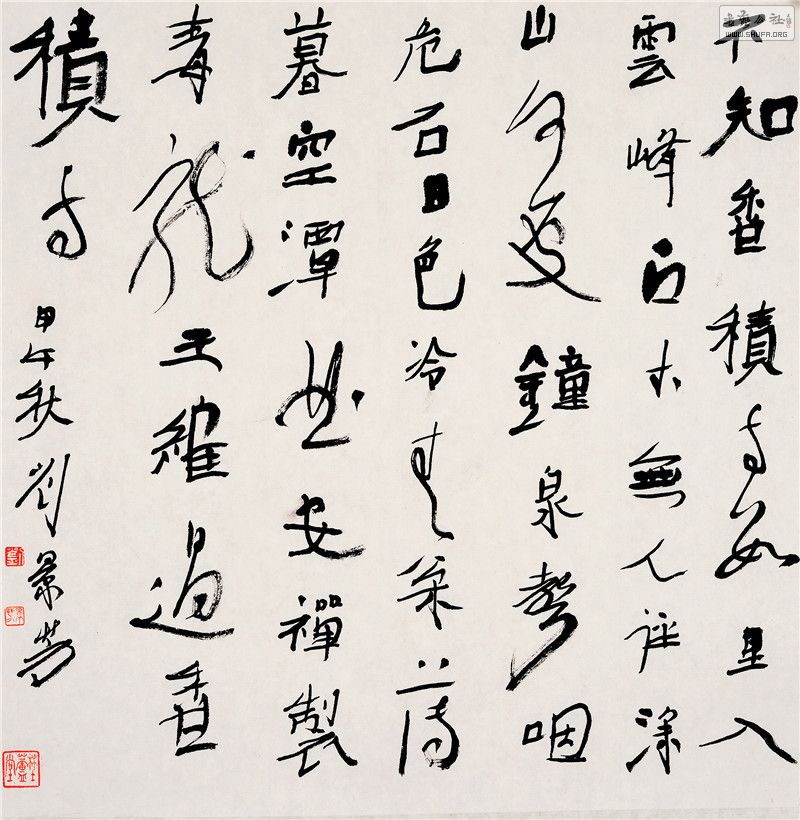 不知香積寺數里入
雲峰古木無人徑深
山何處鐘泉聲咽
危石日色冷青松薄
暮空潭曲安禪製
毒龍王維過香
積寺甲午秋劉景芳
书法公社
WWW.SHUFA.ORG